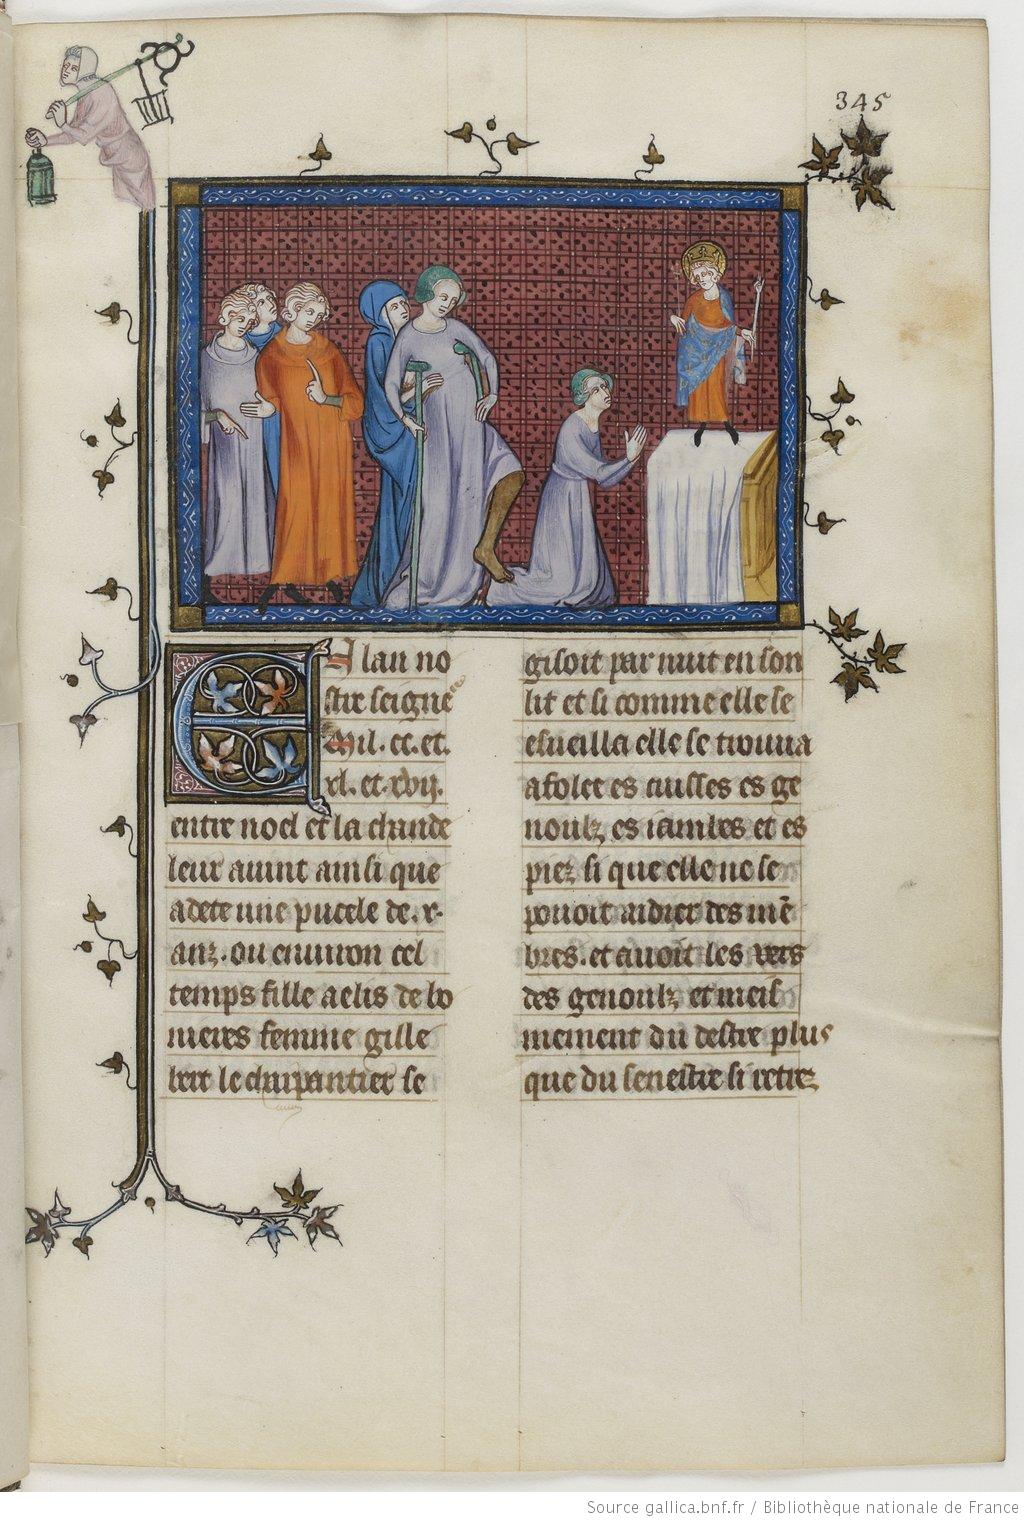 345
E A lan no
stre seigne
Mil. cc. et.
xl. et. xvij.
entre noel et la chande
leur avint ainsi que
adete une pucele de .x.
anz. ou environ cel
temps fille aelis de bo
nieres femme gille
bert le charpantier se
gisoit par nuit en son
lit et si comme elle se
esueilla elle se trouua
afolee es cuisses es ge
noulz es iambes et es
piez si que elle ne se
pouoit aidier des mē
bres. et avoit les vers
des genoulz et meis
mement du destre plus
que du senestre si retrez
Source gallica.bnf.fr / Bibliothèque nationale de France